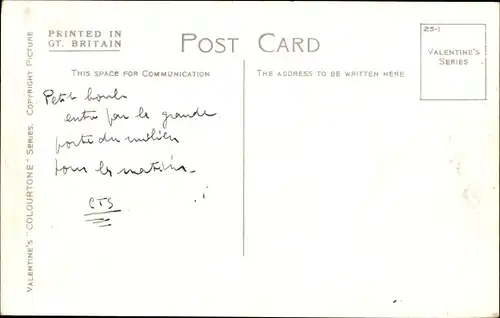 PRINTED IN
GT. BRITAIN
POST CARD
25-1
VALENTINE'S
SERIES
THIS SPACE FOR COMMUNICATION
THE ADDRESS TO BE WRITTEN HERE
VALENTINE'S "COLOURTONE" SERIES. COPYRIGHT PICTURE
Petit
entre par la grande
porte du milieu
tous les matins.
CTS